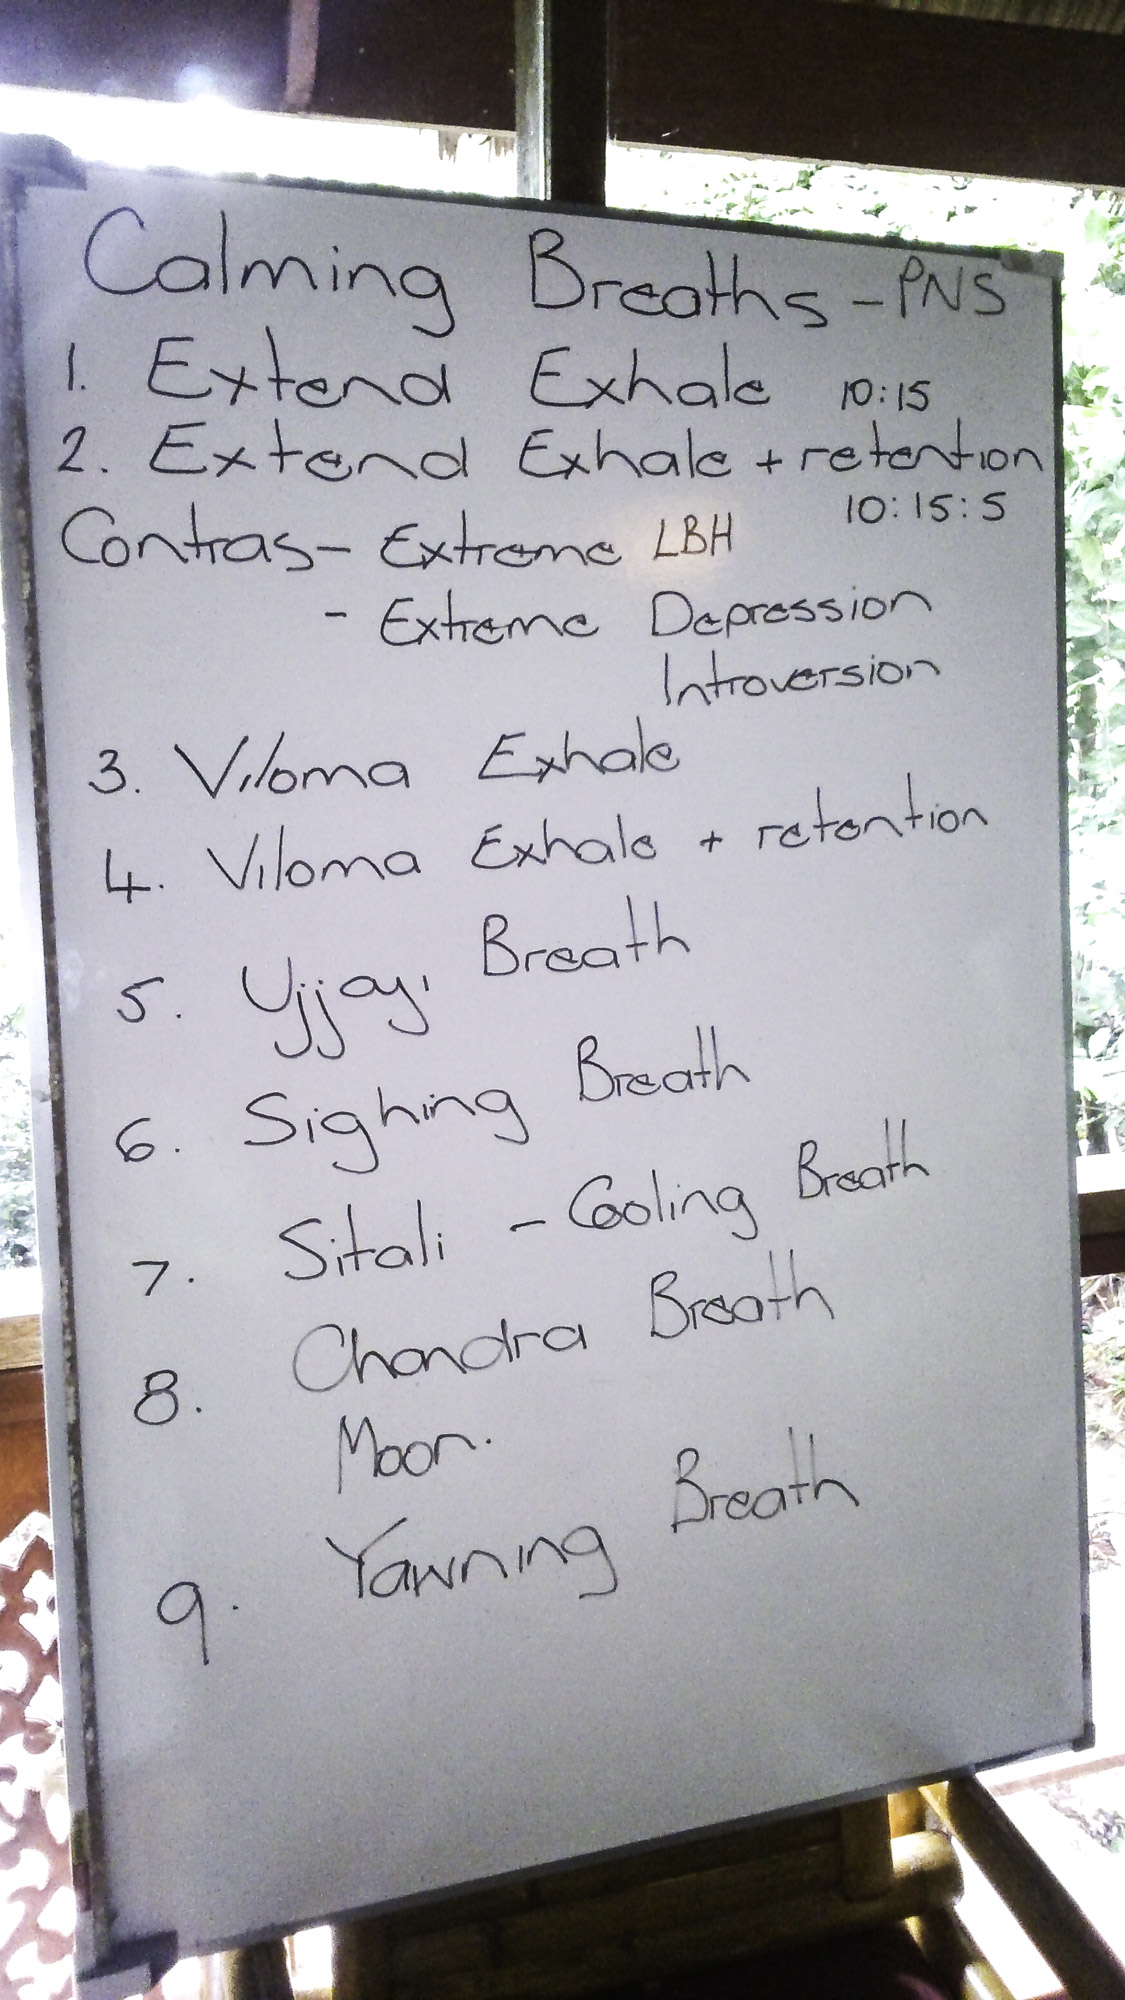 Calming Breaths - PNS
1. Extend Exhale 10:15
2. Extend Exhale + retention
10:15:5
Contras - Extreme LBH
- Extreme Depression
Introversion
3. Viloma Exhale
4. Viloma Exhale + retention
5. Ujjayi Breath
6. Sighing Breath
7. Sitali - Cooling Breath
8. Chandra Breath
Moon.
9. Yawning Breath